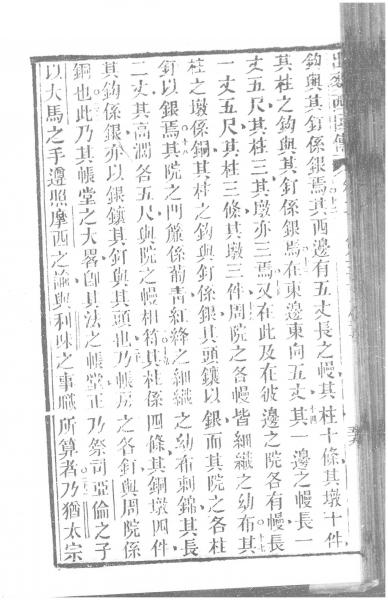 出麥西國傳
鈎與其釘係銀焉其西邊有五丈長之幔其柱十條其墩十件
其柱之鈎與其釘係銀焉在東邊東向五丈其一邊之幔長一
丈五尺其柱三其墩亦三焉又在此及在彼邊之院各有幔長
一丈五尺其柱三條其墩三件周院之各幔皆細織之幼布其
柱之墩係銅其柱之鈎與釘係銀其頭鑲以銀而其院之各柱
釘以銀焉其院之門簾係葡青紅絳之細織之幼布刺錦其長
二丈其高濶各五尺與院之幔相符其柱係四條其銅墩四件
其鈎係銀亦以銀鑲其釘與其頭也乃帳房之各釘與周院係
銅也此乃其帳堂之大畧卽其法之帳堂正乃祭司亞倫之子
以大馬之手遵照摩西之諭與利味之事職所算者乃猶太宗